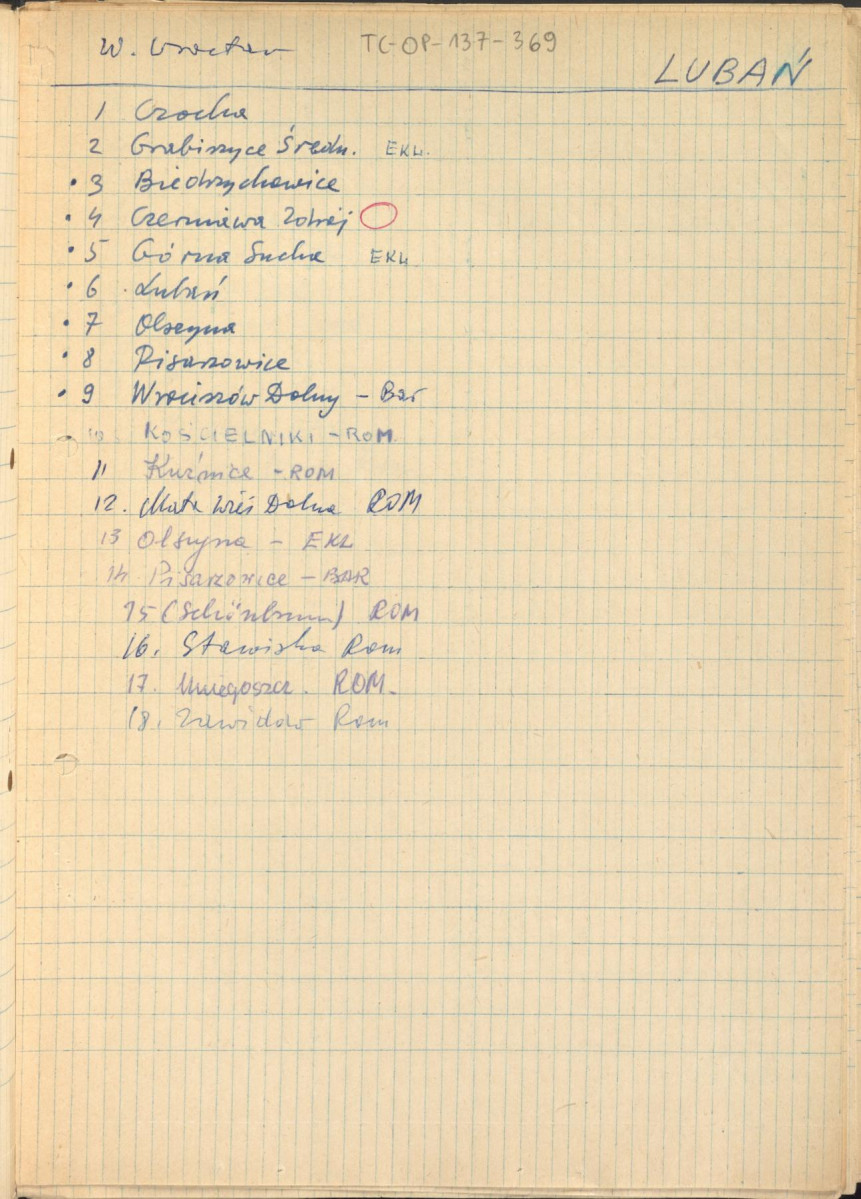 W. Wrocław TC-OP-137-369
LUBAŃ
1 Czocha
2 Grabiszyce Średn. EKL.
• 3 Biedrzychowice
• 4 Czerniawa Zdrój
• 5 Górna Sucha EKL
• 6 Lubań
• 7 Olszyna
• 8 Pisarzowice
• 9 Wrociszów Dolny - Bar
10 KOŚCIELNIKI - ROM
11 Kuźnice - ROM
12. Mała Wieś Dolna ROM
13 Olszyna - EKL
14 Pisarzowice - BAR
15 (Schönbrunn) ROM
16. Stawiska Rom
17. Uniegoszcz. ROM.
18. Zawidów Rom